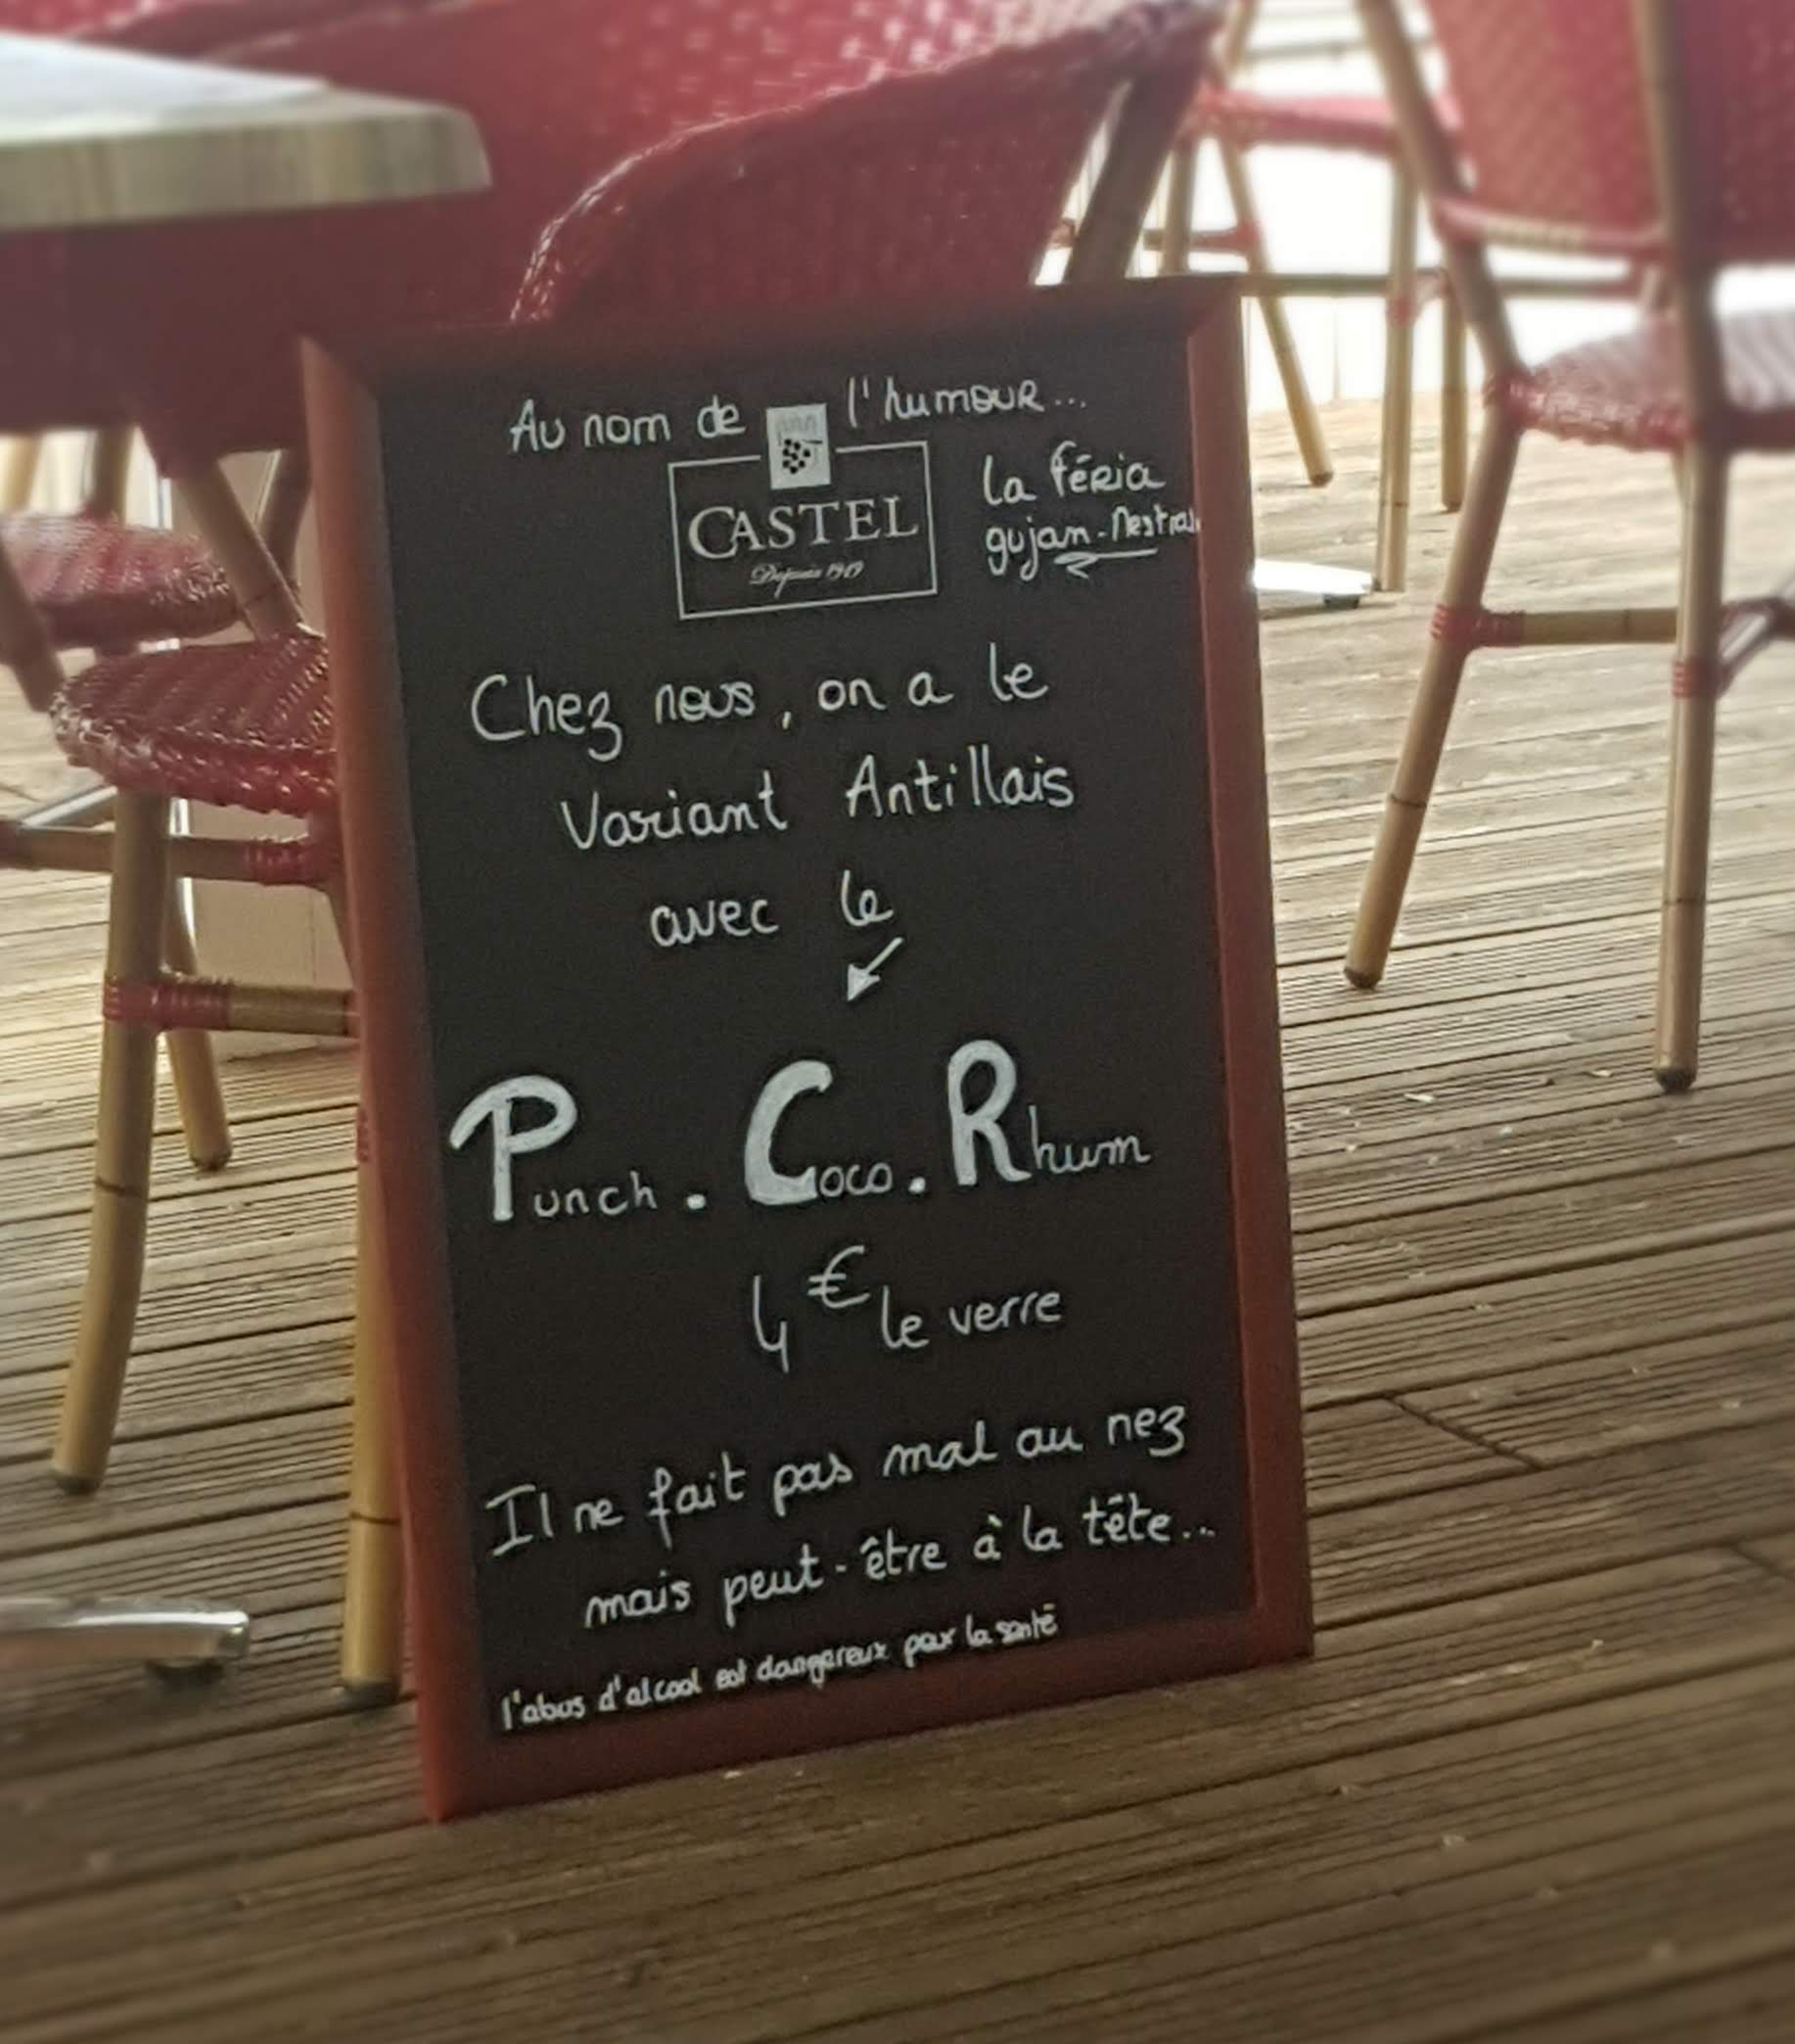 Au nom de l'humour...
CASTEL
Depuis 1949
la féria
gujan-Mestras
Chez nous, on a le
Variant Antillais
avec le
Punch . Coco . Rhum
4€ le verre
Il ne fait pas mal au nez
mais peut-être à la tête...
l'abus d'alcool est dangereux par la santé